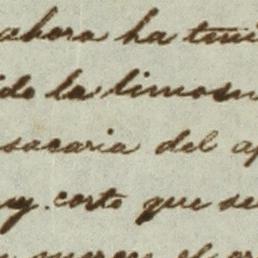 ahora ha teni
ido la limosn
sacaria del a
uy corto que se